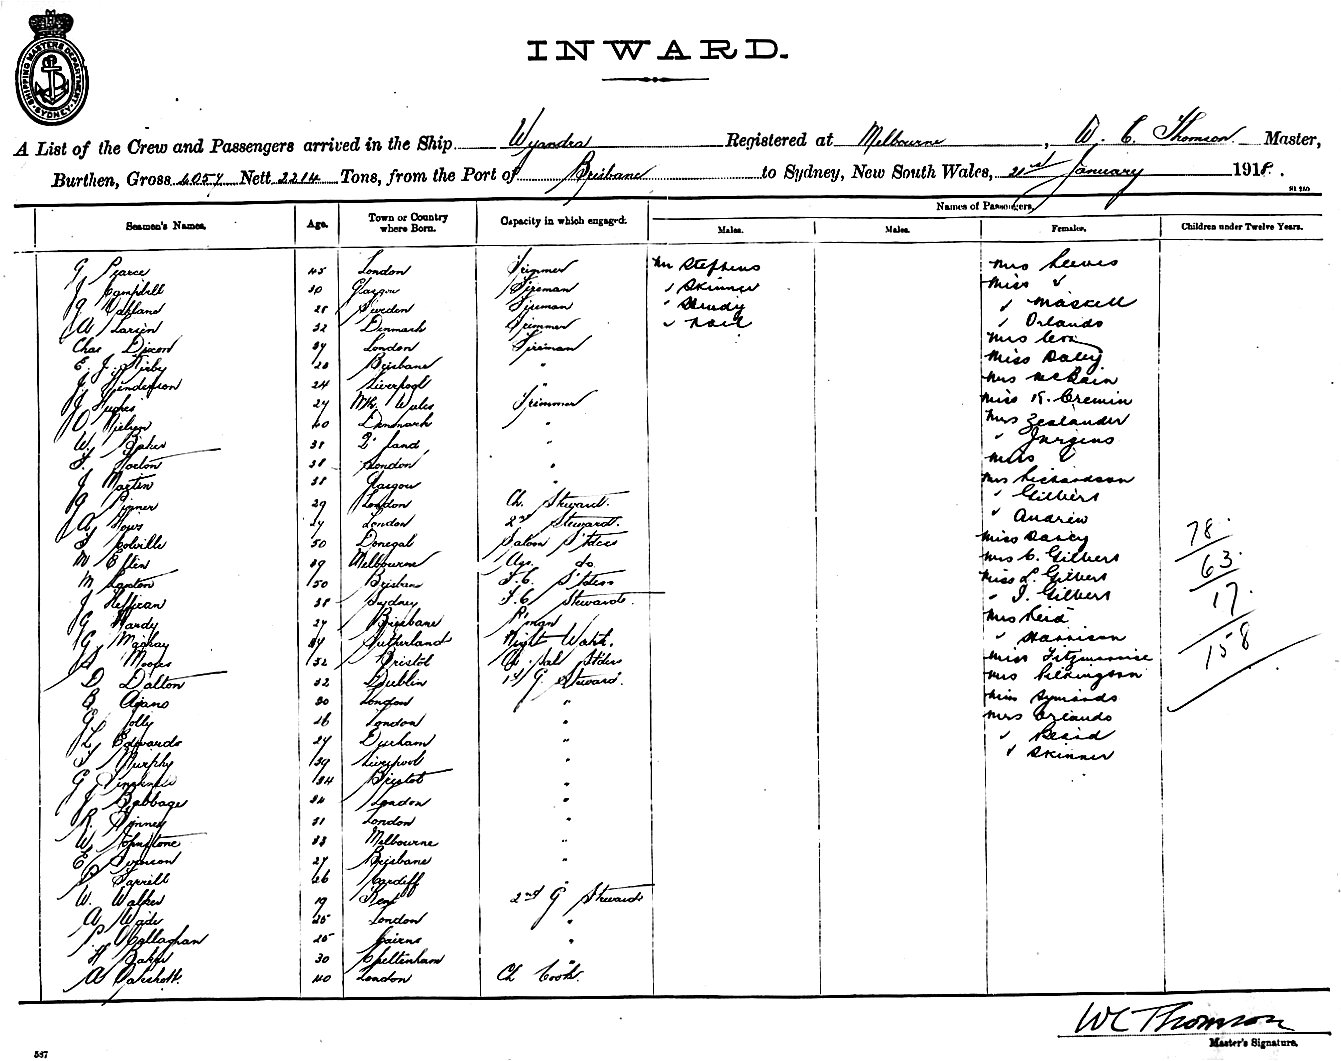 SHIPPING MASTERS DEPARTMENT SYDNEY
INWARD.
A List of the Crew and Passengers arrived in the Ship Wyandra Registered at Melbourne, W. C. Thomson Master,
Burthen, Gross 4057 Nett 2214 Tons, from the Port of Brisbane to Sydney, New South Wales, 21st January 1918.
Names of Passengers,
Seamen's Names. Age. Town or Country where Born. Capacity in which engaged. Males. Males. Females. Children under Twelve Years.
G Pearce 45 London Trimmer Mr Stephens Mrs Reeves
J Campbell 30 Glasgow Fireman " Skinner Miss "
28 Sweden Fireman " " Maskell
A Larsen 32 Denmark Trimmer " " Orlando
Chas Dixon 37 London Fireman Mrs
E. J. Kirby 28 Brisbane " Miss Daley
J. Henderson 24 Liverpool " Mrs McBain
J Hughes 27 Wales Trimmer Miss K. Cremin
O Nielsen 40 Denmark " Mrs Zeslander
W. Baker 38 Q'land " " Jurgens
38 London " Miss "
J Martin 38 Glasgow Mrs Richardson
29 London Ch. Steward. " Gilbert
A 27 London 2nd Steward. " Andrew
Colville 50 Donegal Saloon S'tdess Miss Darcy
39 Melbourne do Mrs C. Gilbert
M Laxton 50 Brisbane F.C. S'tdess Miss L. Gilbert
J Heffican 38 Sydney F.C Stewards " I. Gilbert
G Hardy 27 Brisbane P'man Mrs Reid
G Mackay 34 Sutherland Night Watch. " Harrison
Moores 52 Bristol Sal S'tdess Miss Fitzmaurice
D Dalton 32 Dublin 1st G Steward. Mrs Pilkington
30 London " Miss Symonds
G Jolly 26 London " Mrs Orlando
L Edwards 27 Durham " "
Murphy 39 Liverpool " " Skinner
G 34 Bristol "
J Babbage 34 London "
R. 31 London "
W Johnstone 33 Melbourne "
E Svenson 27 Brisbane "
Farrell 26 Cardiff "
W. Walker 19 Kent 2nd G Stewards
A Wade 25 London "
P. O'Callaghan 25 Cairns "
H Baker 30 Cheltenham "
A 40 London Ch Cook.
78.
63.
17.
158
WC Thomson
Master's Signature.
537